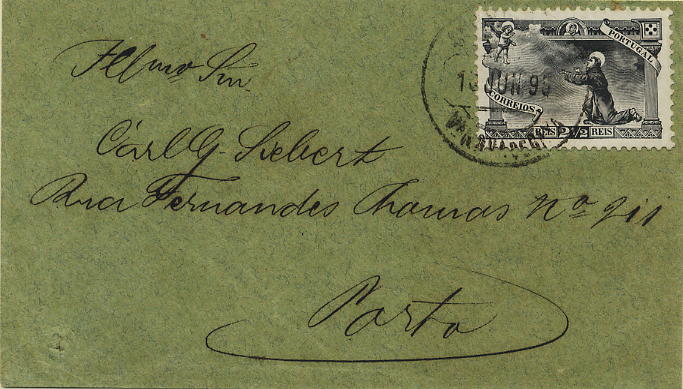 Illmo Snr.
Carl G. Siebert
Rua Fernandes Thomas No 911
Porto
PORTUGAL
CORREIOS
REIS 2 1/2 REIS
JUN 95